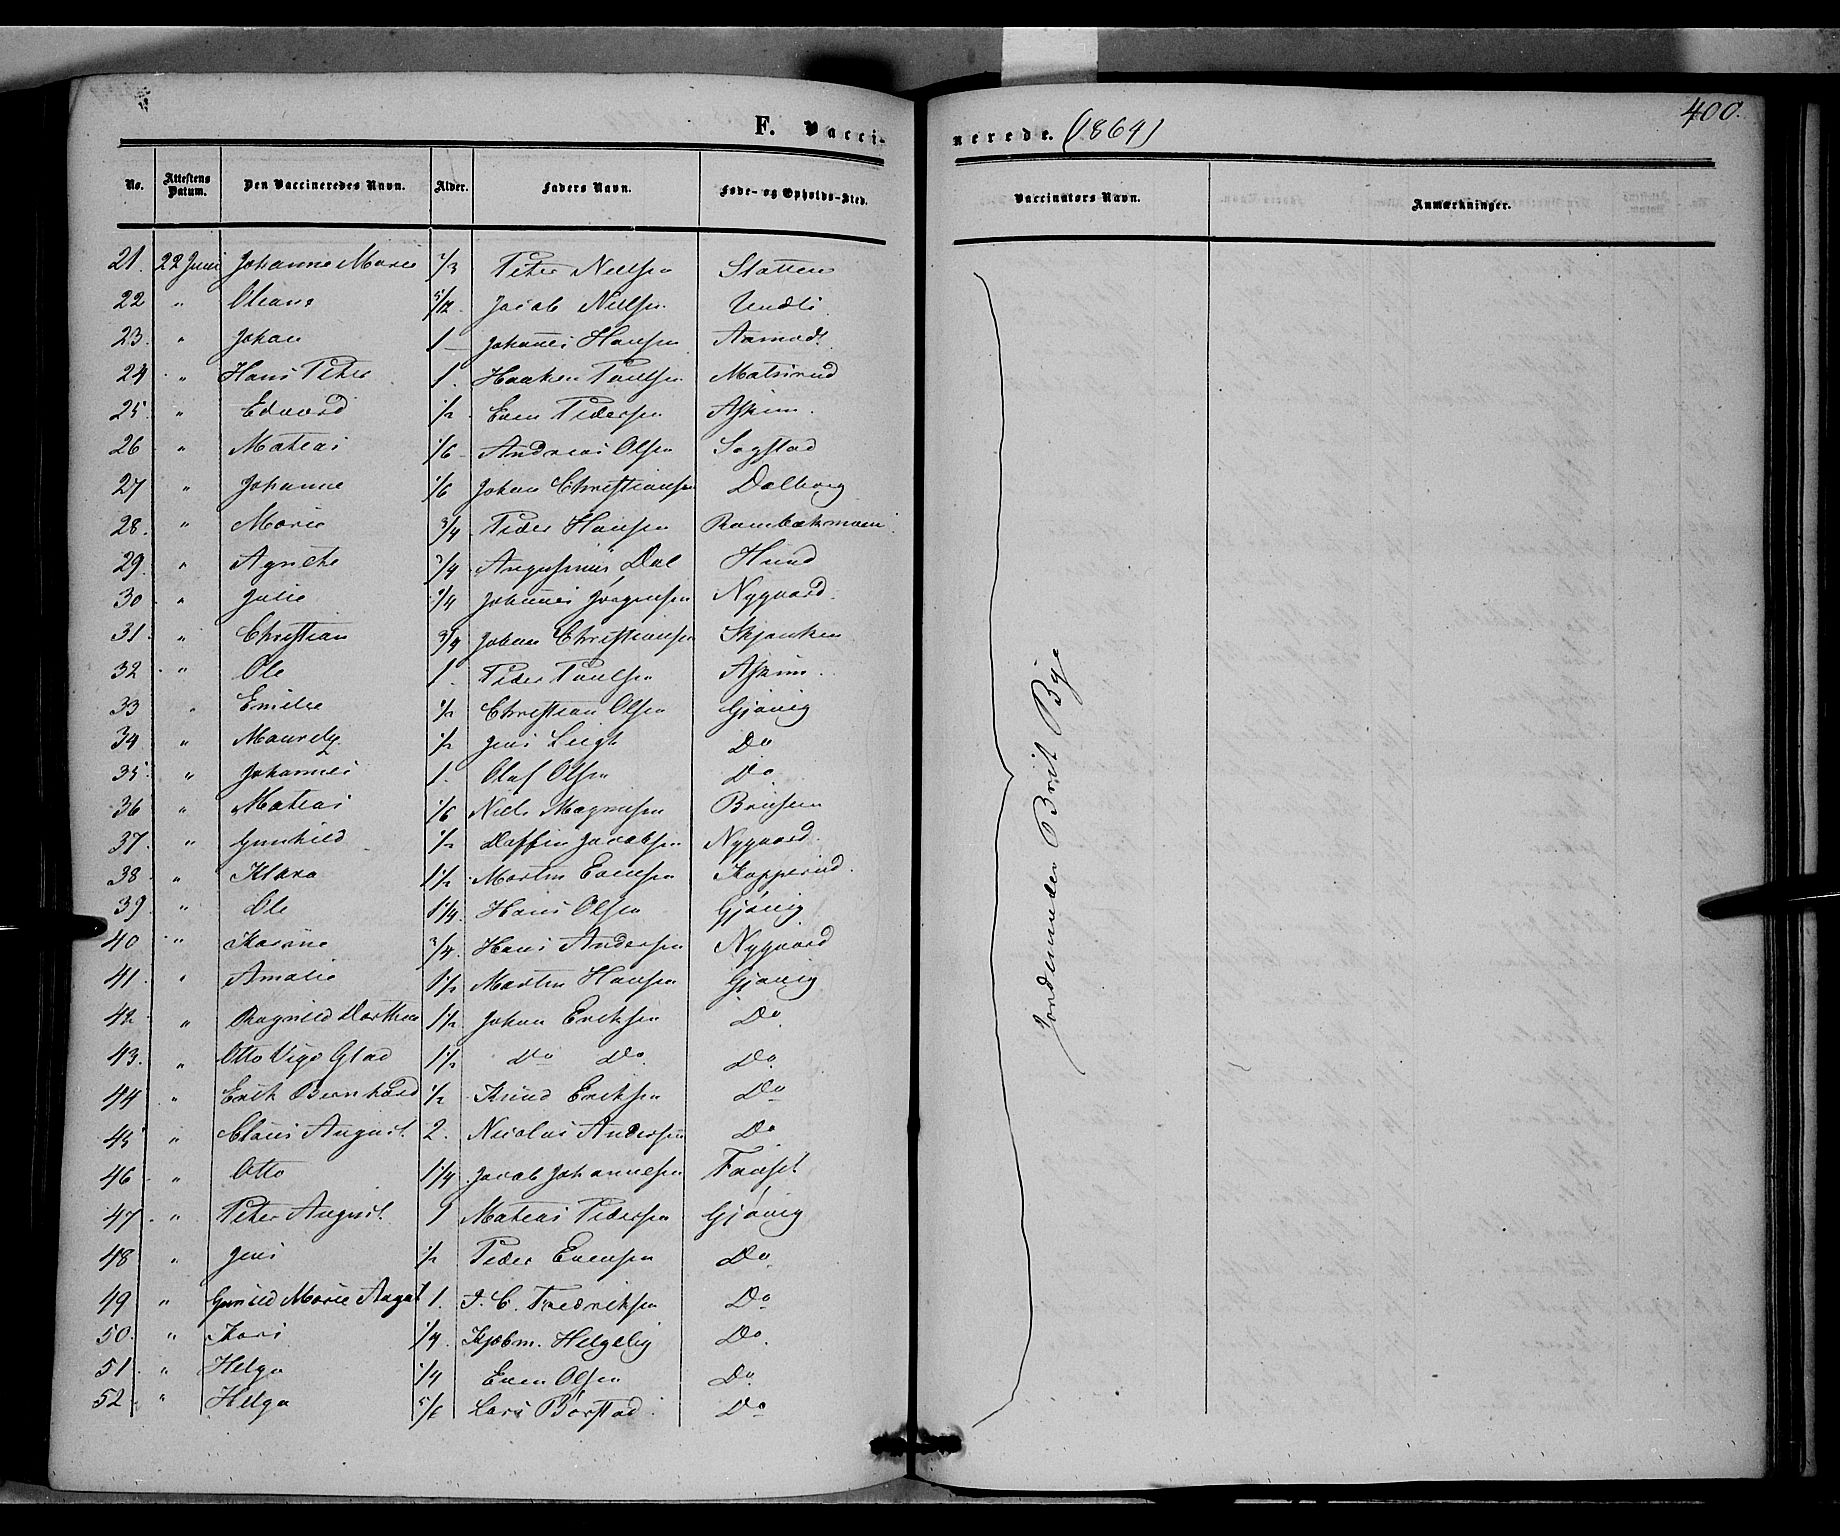 400.
F. Vaccinerede. (1864)
No. Attestens Datum. Den Vaccineredes Navn. Alder. Faders Navn. Føde- og Opholds-Sted. Vaccinators Navn. Anmærkninger.
21. 22 Juni Johanne Marie 1/3 Peter Nielsen Statten
22 " Oliane 5/12 Jacob Nielsen
23. " Johan 1 Johannes Hansen Aamodt
24 " Hans Peter 1. Haaken Paulsen Matsrud
25 " Edvard 1/2 Even Pedersen Askim.
26 " Mateas 1/6 Andreas Olsen Sogstad
27 " Johanne 1/6 Johan Christiansen Dalborg
28. " Marie 3/4 Peder Hansen Rambækmoen
29. " Agnethe 3/4 Augustinus Dal Hund
30 " Julie 3/4 Johannes Jørgensen Nygaard.
31. " Christian 3/4 Johan Christiansen Skjønken
32 " Ole 1. Peder Paulsen Askim.
33 " Emilie 1/2 Christian Olsen Gjøvig
34 " 1/2 Jens Do
35 " Johannes 1. Olaf Olsen Do.
36 " Mateas 1/6 Niels Magnusen Bruseen
37. " Gunhild 1/2 Daffin Jacobsen Nygaard.
38 " Klara 1 1/2 Morten Evensen Kopperud.
39 " Ole 1 1/4. Hans Olsen Gjøvig
40 " Karine 3/4. Hans Andersen Nygaard
41. " Amalie 1 1/2 Morten Hansen Gjøvig
42. " Ragnild Dorthea 1 1/2 Johan Eriksen Do.
43. " Otto Vigo Glad 1 1/2 Do Do. Do.
44 " Erik Bernhard 1/2 Knud Eriksen Do
45 " Claus August 2. Nicolai Andersen Do.
46 " Otto 1 1/4 Jacob Johannesen Fauset
47. " Peter August 9 Mateas Pedersen Gjøvig
48 " Jens 1/2 Peder Evensen Do.
49 " Gunild Marie Augst 1. J. C. Fredriksen Do
50. " Kari 1/4 Kjøbm. Helgelig Do.
51. " Helga 1/4 Even Olsen Do
52. " Helga 5/6 Lars Børstad. Do
Jordemoder Brit Bye